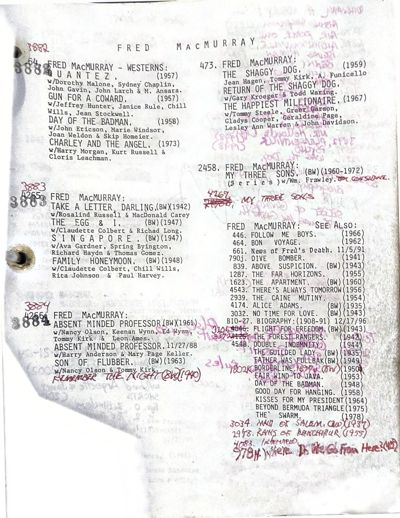 FRED MacMURRAY
3882
64.
3888
FRED MacMURRAY - WESTERNS:
QUANTEZ. (1957)
w/Dorothy Malone, Sydney Chaplin,
John Gavin, John Larch & M. Ansara.
GUN FOR A COWARD. (1957)
w/Jeffrey Hunter, Janice Rule, Chill
Wills, Jean Stockwell.
DAY OF THE BADMAN. (1958)
w/John Ericson, Marie Windsor,
Joan Weldon & Skip Homeier.
CHARLEY AND THE ANGEL. (1973)
w/Harry Morgan, Kurt Russell &
Cloris Leachman.
3883
FRED MacMURRAY:
TAKE A LETTER, DARLING.(BW)(1942)
w/Rosalind Russell & MacDonald Carey
THE EGG & I. (BW)(1947)
w/Claudette Colbert & Richad Long.
SINGAPORE. (BW)(1947)
w/Ava Gardner, Spring Byington,
Richard Haydn & Thomas Gomez.
FAMILY HONEYMOON. (BW)(1948)
w/Claudette Colbert, Chill Wills,
Rita Johnson & Paul Harvey.
3884
4266.
FRED MacMURRAY:
ABSENT MINDED PROFESSOR(BW)(1961)
w/Nancy Olson, Keenan Wynn, Ed Wynn,
Tommy Kirk & Leon Ames.
ABSENT MINDED PROFESSOR.11/27/88
w/Harry Anderson & Mary Page Keller.
SON OF FLUBBER. (BW)(1963)
w/Nancy Olson & Tommy Kirk.
REMEMBER THE NIGHT (BW)(1940)
473. FRED MacMURRAY:
THE SHAGGY DOG. (1959)
Jean Hagen, Tommy Kirk, A. Funicello
RETURN OF THE SHAGGY DOG.
w/Gary Kroeger & Todd Waring.
THE HAPPIEST MILLIONAIRE. (1967)
w/Tommy Steele, Greer Garson,
Gladys Cooper, Geraldine Page,
Lesley Ann Warren & John Davidson.
2458. FRED MacMURRAY:
MY THREE SONS. (BW)(1960-1972)
(Series) w/Wm. Frawley.
4267
MY THREE SONS
FRED MacMURRAY: SEE ALSO:
446. FOLLOW ME BOYS. (1966)
464. BON VOYAGE. (1962)
661. News of Fred's Death. 11/5/91
790j. DIVE BOMBER. (1941)
839. ABOVE SUSPICION. (BW)(1943)
1287. THE FAR HORIZONS. (1955)
1623. THE APARTMENT. (BW)(1960)
4543. THERE'S ALWAYS TOMORROW (1956)
2939. THE CAINE MUTINY. (1954)
4174. ALICE ADAMS. (BW)(1935)
3032. NO TIME FOR LOVE. (BW)(1943)
BIO-27. BIOGRAPHY:(1908-91) 12/17/96
4046. FLIGHT FOR FREEDOM.(BW)(1943)
THE FOREST RANGERS. (1942)
4548. DOUBLE INDEMNITY. (BW)(1944)
THE GUILDED LADY (BW)(1935)
FATHER WAS FULLBAK(BW)(1949)
BORDERLINE (BW)(1950)
FAIR WIND TO JAVA (1953)
DAY OF THE BADMAN. (1948)
GOOD DAY FOR HANGING. (1958)
KISSES FOR MY PRESIDENT (1964)
BEYOND BERMUDA TRIANGLE(1975)
THE SWARM. (1978)
3034. MAID OF SALEM. (BW)(1937)
2973. RAINS OF RANCHIPUR (1955)
5784. Where Do We Go From Here?(1945)